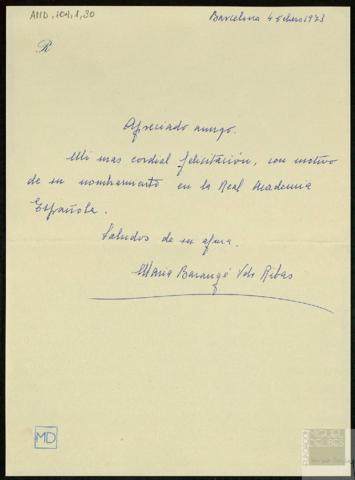 AMD, 101, 1, 30
Barcelona 4 febrero 1973
R
Apreciado amigo.
Mi mas cordial felicitación, con motivo
de su nombramiento en la Real Academia
Española.
Saludos de su afma.
Maria Barangé Vda Ribas
MD
FUNDACIÓN
MIGUEL
DELIBES